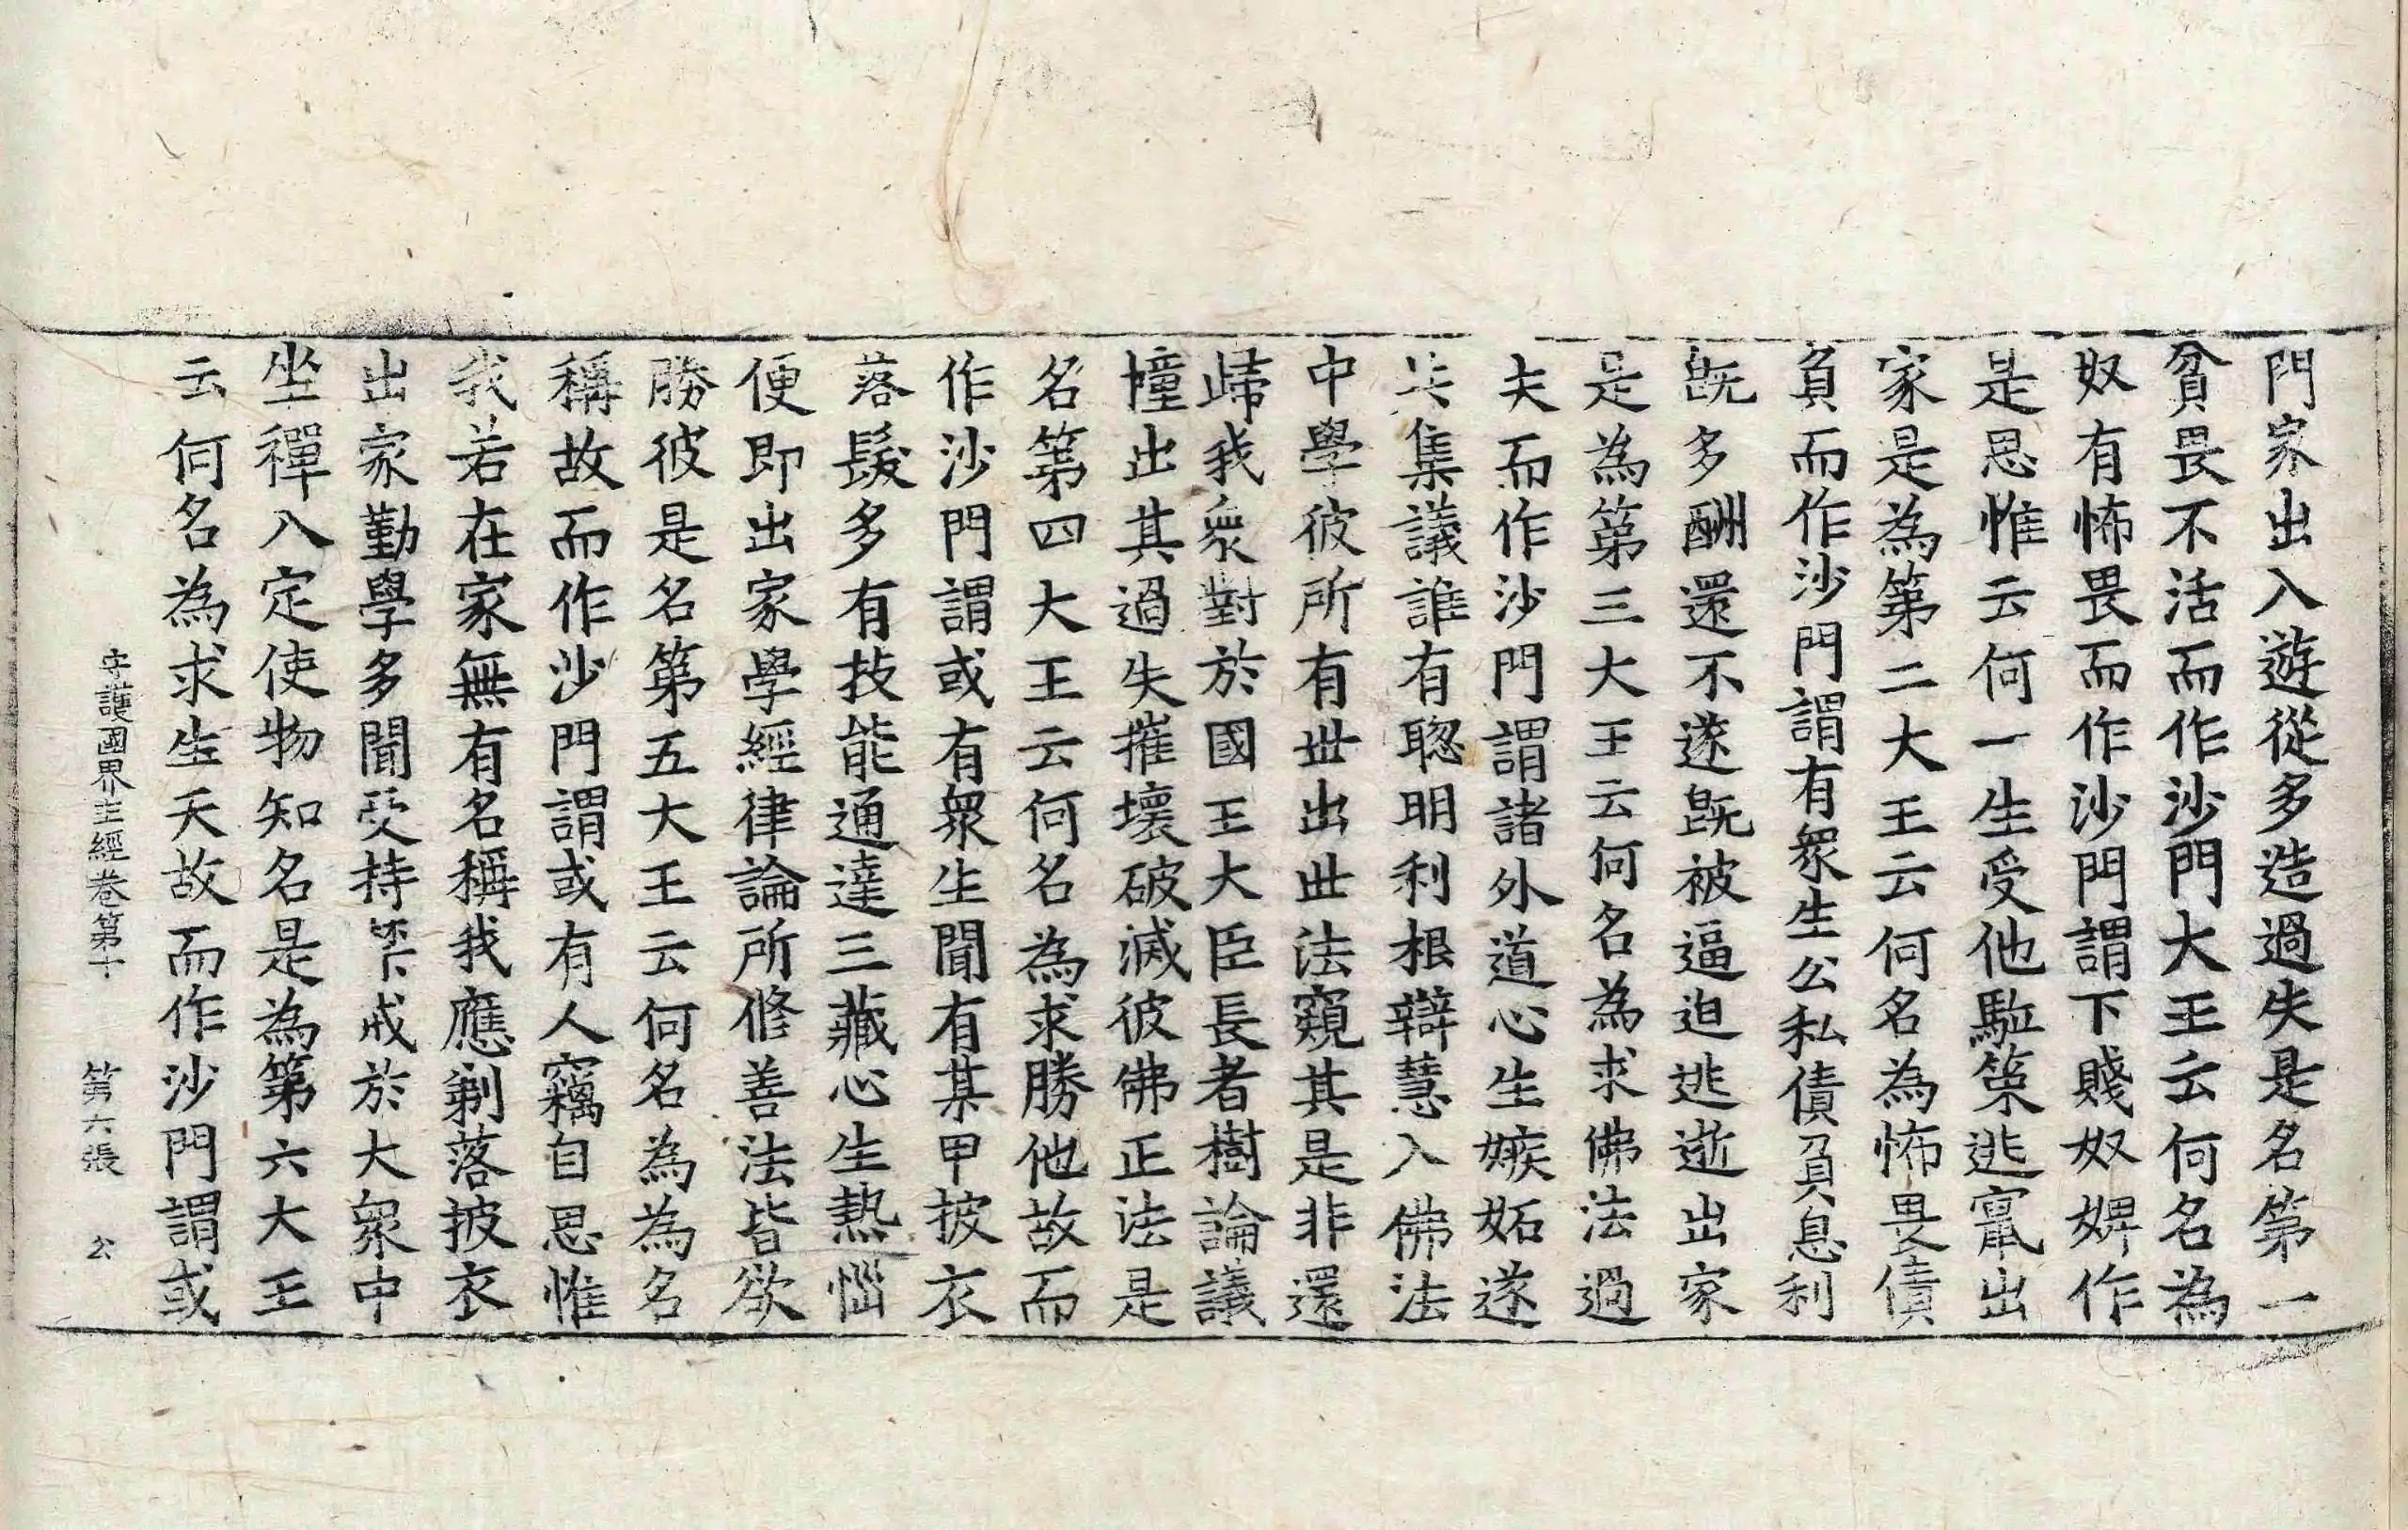 門家出入遊從多造過失是名第一
貧畏不活而作沙門大王云何名為
奴有怖畏而作沙門謂下賤奴婢作
是思惟云何一生受他駈策逃竄出
家是為第二大王云何名為怖畏債
負而作沙門謂有衆生公私債負息利
旣多酬還不遂旣被逼迫逃逝出家
是為第三大王云何名為求佛法過
失而作沙門謂諸外道心生嫉妬遂
共集議誰有聦明利根辯慧入佛法
中學彼所有世出世法窺其是非還
歸我衆對於國王大臣長者樹論議
幢出其過失摧壞破滅彼佛正法是
名第四大王云何名為求勝他故而
作沙門謂或有衆生聞有某甲披衣
落髮多有技能通達三藏心生熱惱
便即出家學經律論所修善法皆欲
勝彼是名第五大王云何名為為名
稱故而作沙門謂或有人竊自思惟
我若在家無有名稱我應剃落披衣
出家勤學多聞受持禁戒於大衆中
坐禪入定使物知名是為第六大王
云何名為求生天故而作沙門謂或
守護國界主經卷第十 第六張 公